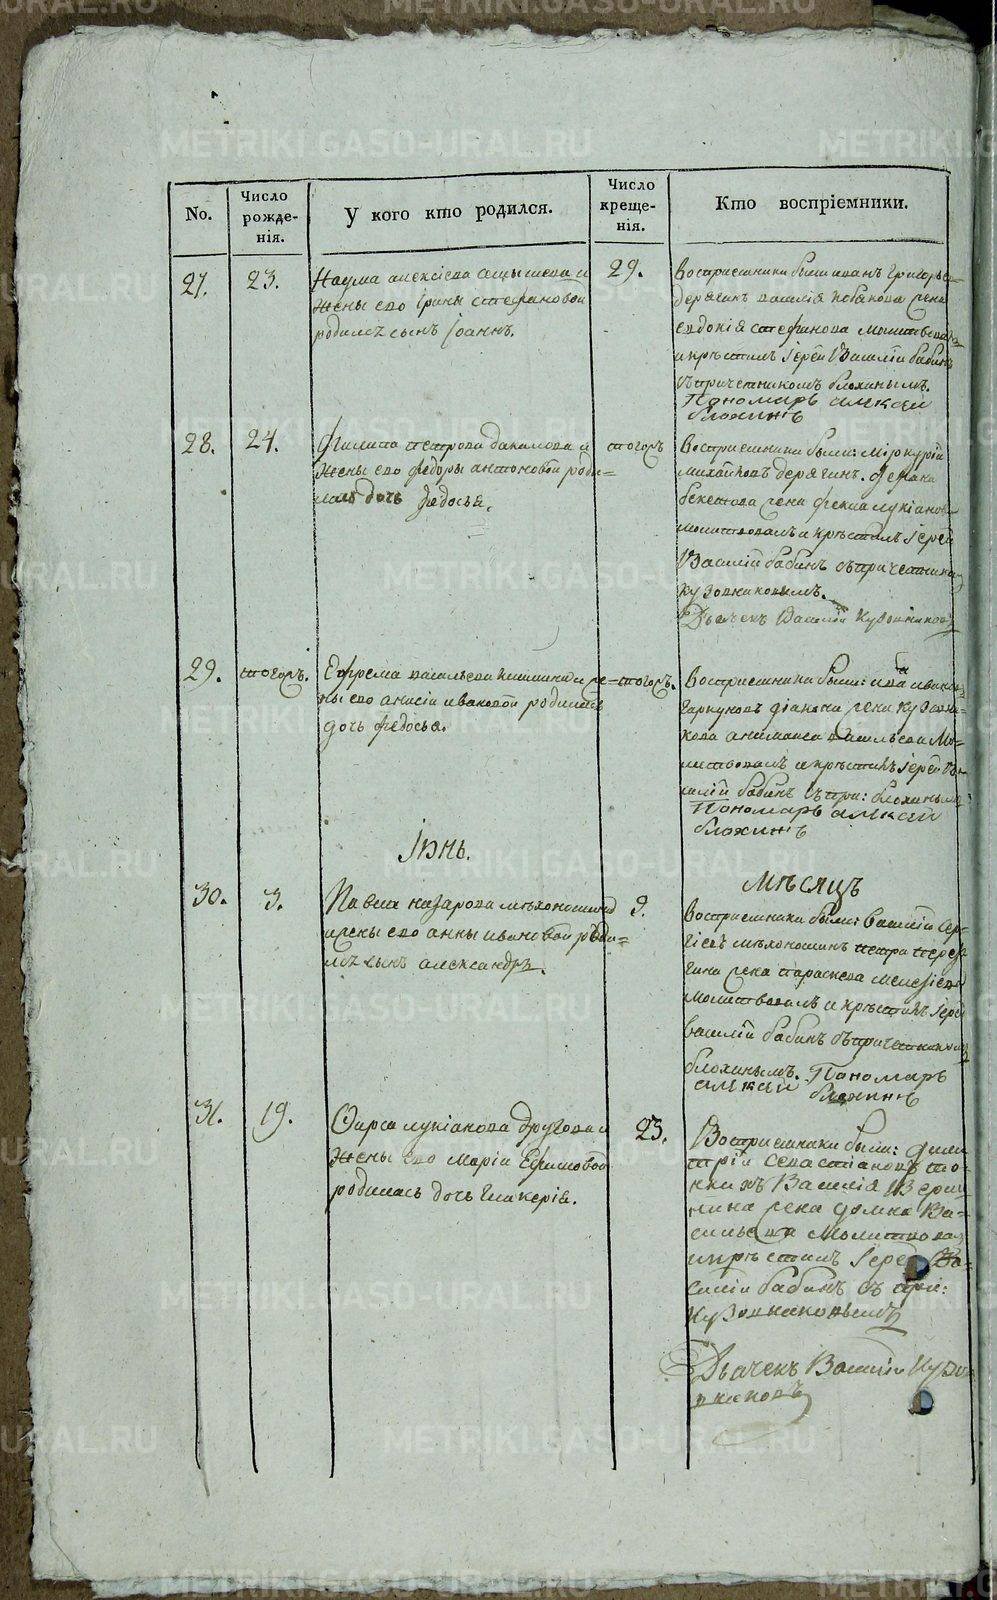 No.
Число рожденія.
У кого кто родился.
Число крещенія.
Кто воспріемники.
27.
23.
Наума алексіева
жены ево ірины стефановой
родилсѣ сынъ іоаннъ.
29.
Воспріемники были иванъ григорьев
дерягинъ василія жена
евдокія стефанова молитвовал
и крѣстилъ іерей Василій бабинъ
съ причетникомъ блохинымъ.
Пономарь алексей
блохинъ
28.
24.
Филипа петрова данилова и
жены ево федоры антоновой роди=
лась дочь федосья.
тогожъ
Воспріемники были: меркурій
михайловъ дерягинъ.
жена фекла лукіанов
молитвовалъ и крѣстилъ іерей
Василій бабинъ съ причетником
кузовниковымъ.
Дьячекъ Василій Кузовников
29.
тогожъ.
Ефрема васильева и же=
ны ево анисіи ивановой родилась
дочь федосья.
тогожъ.
Воспріемники были: иванов
діакона жена кузовни=
кова васильева Мо=
литвовалъ и крѣстилъ іерей Ва
силій бабинъ съ при: блохинымъ
Пономарь алексей
блохинъ
Іюнь.
Мѣсяцъ
30.
3.
Павла назарова мѣхоношина
и жены ево анны ивановой роди=
лсѣ сынъ александръ.
9.
Воспріемники были: василій сер=
гіевъ мѣхоношинъ петра
жена параскева
молитвовалъ и крѣстилъ іерей
василій бабинъ съ причетникомъ
блохинымъ. Пономарь
алексей блохинъ
31.
19.
Фирса лукіанова другова и
жены ево маріи Ефимовой
родилась дочь гликерія.
23.
Воспріемники были: дими
трій севастіановъ
Василія
жена домна Ва=
сильева Молитвовал
и крѣстилъ іерей Ва=
силій бабинъ съ при:
кузовниковымъ
Дьячекъ Василій Кузо
вниковъ
METRIKI.GASO-URAL.RU